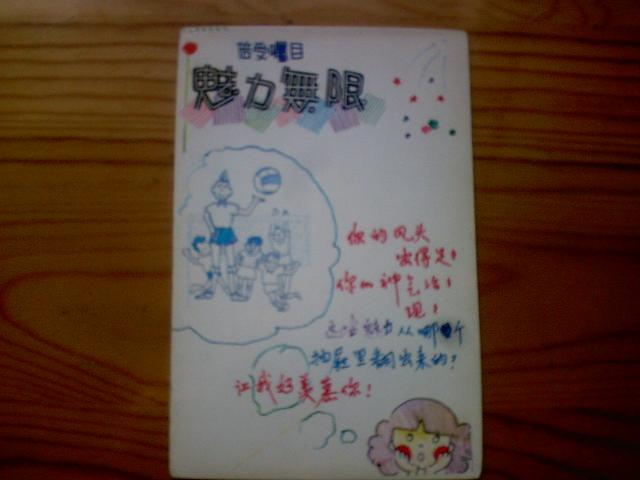 倍受囑目
魅力無限
你的风头
出得足!
你的神气活!
现!
这些魅力从哪个
抽屉里翻出来的?
让我好羡慕你!